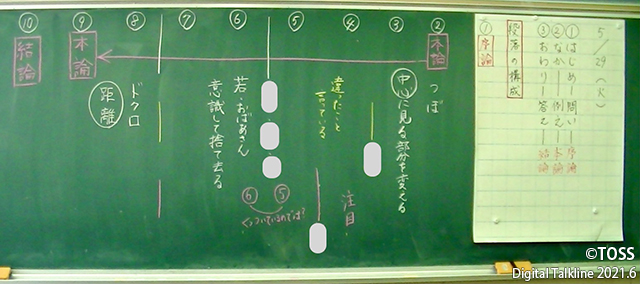 5/29(火)
①はじめ―問い―序論
②なか―例え―本論
③おわり―答え―結論
段落の構成
① 序論
② 本論
③
④
⑤
⑥
⑦
⑧
⑨ 本論
⑩ 結論
つぼ
中心に見る部分を変える
違ったこと
言っている
注目
⑤
⑥
くっついているのでは?
若・おばあさん
意識して捨て去る
ドクロ
距離
©TOSS
Digital Talkline 2021.6